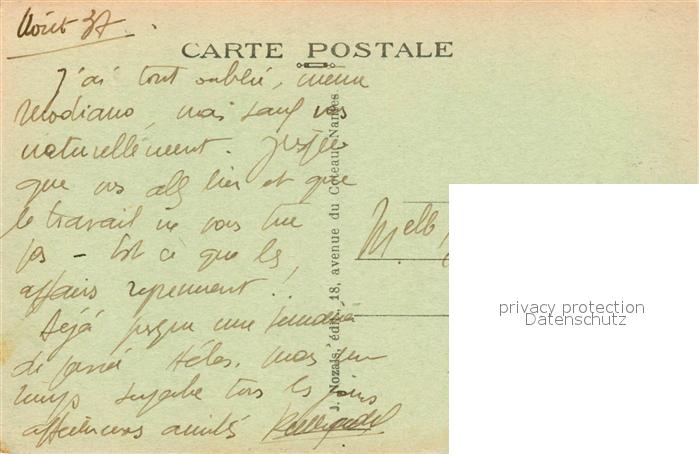 Août 37.
CARTE POSTALE
J'ai tout oublié, même
Modiano, mais sauf vos
naturellement. J'espère
que vos all bien et que
le travail ne vous tue
pas - Est ce que les
affaires reprennent !
Déjà presque une semaine
de passé Hélas, mais
temps superbe tous les jours
affectueuses amitiés
Melle
J. Nozais, édit., 18, avenue du Coteau, Nantes
privacy protection
Datenschutz